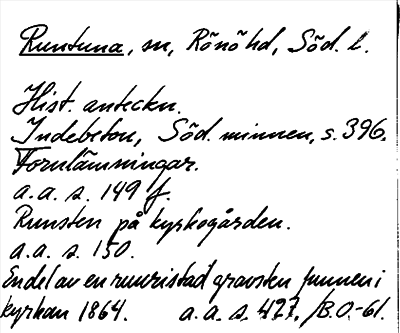 Runtuna, sn, Rönö hd, Söd. l.
Hist. anteckn.
Indebetou, Söd. minnen, s. 396.
Fornlämningar.
a. a. s. 149 f.
Runsten på kyrkogården.
a. a. s. 150.
En del av en runristad gravsten funnen i
kyrkan 1864. a. a. s. 477. /B.O.-61.